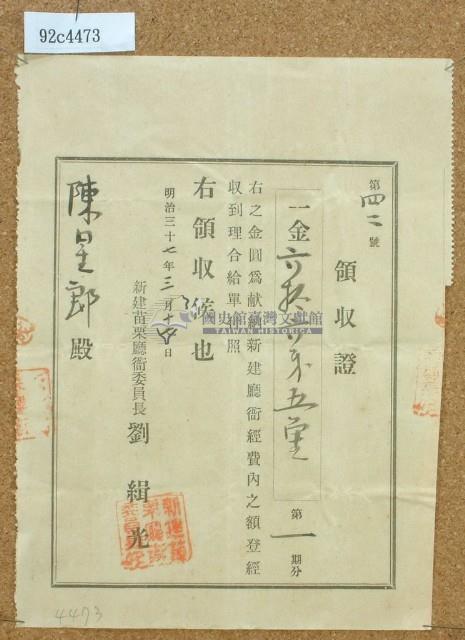 92c4473
第四二號
領收證
一金六拾六円五拾
第一期分
右之金圓爲献納新建廳衙經費內之額登經
收到理合給單執照
右領收候也
明治三十七年三月十六日
新建苗栗廳衙委員長 劉緝光
陳星郎殿
國史館臺灣文獻館
TAIWAN HISTORICA
4473